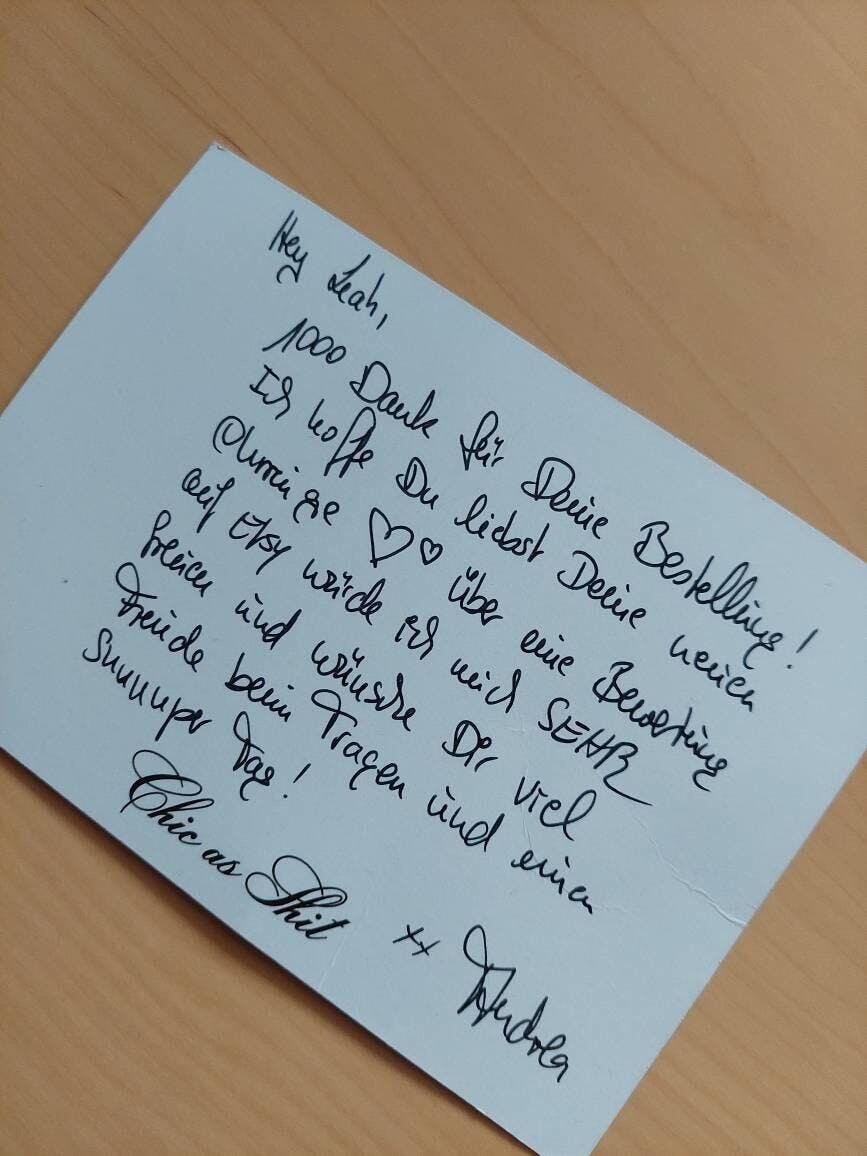 Hey Leah,
1000 Dank für Deine Bestellung!
Ich hoffe Du liebst Deine neuen
Ohrringe ♡♡ über eine Bewertung
auf Etsy würde ich mich SEHR
freuen und wünsche Dir viel
Freude beim Tragen und einen
Suuuuper Tag!
Chic as Shit
xx Andrea